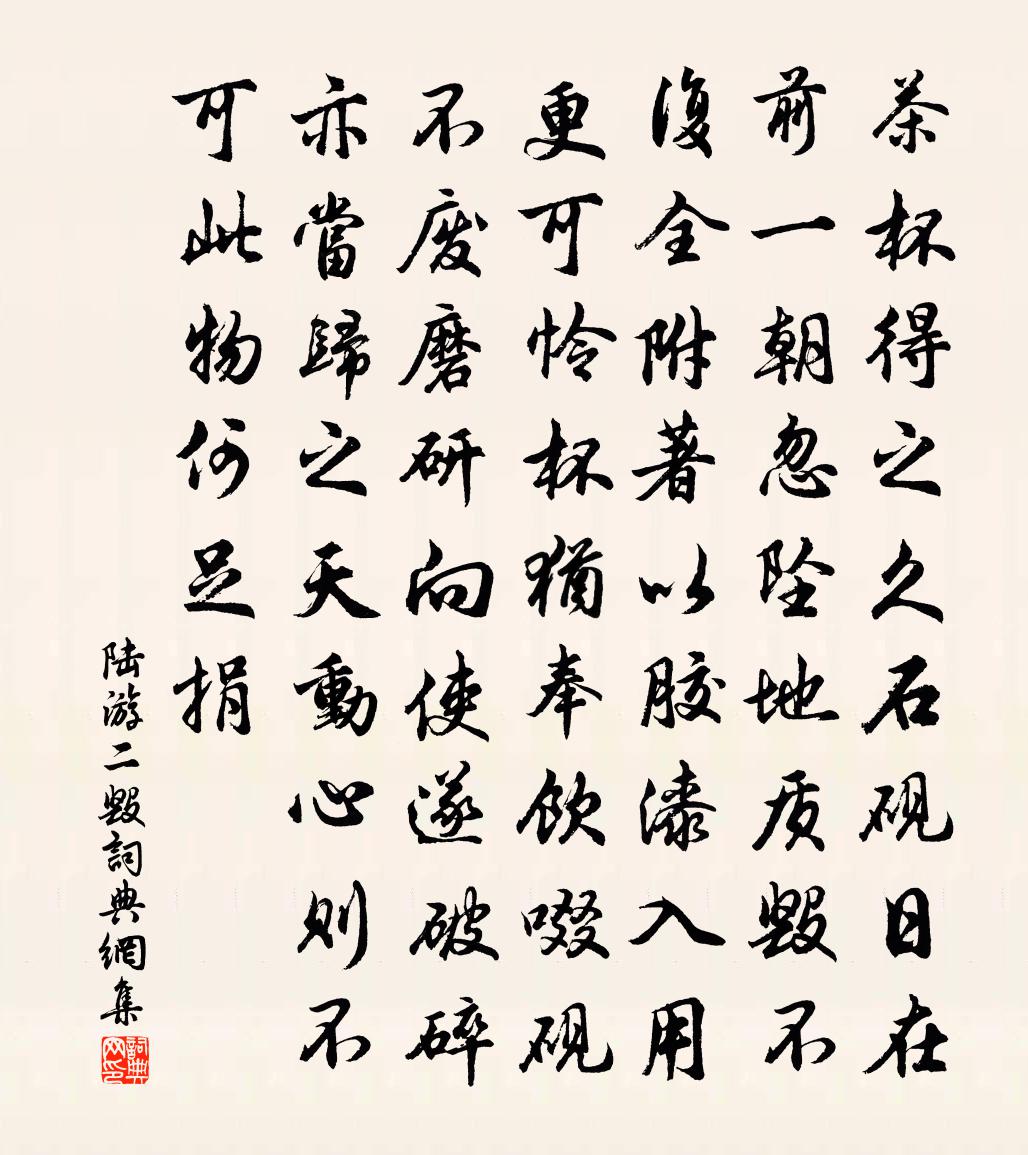 茶杯得之久石砚日在
前一朝忽坠地质毁不
復全附著以胶漆入用
更可怜杯猶奉饮啜砚
不废磨研向使遂破碎
亦當歸之天動心则不
可此物何足捐
陆游二毁詞典網集
詞典网印